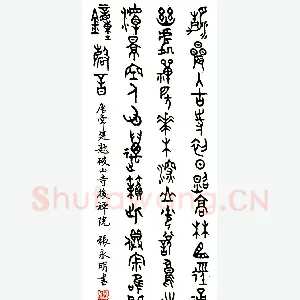 清晨入古寺初日照高林曲徑通
幽處禪房花木深山光説鳥性
潭景空人心萬籟此俱寂唯聞
鐘磬音
唐常建題破山寺後禪院 張永明書
Shufawang.CN